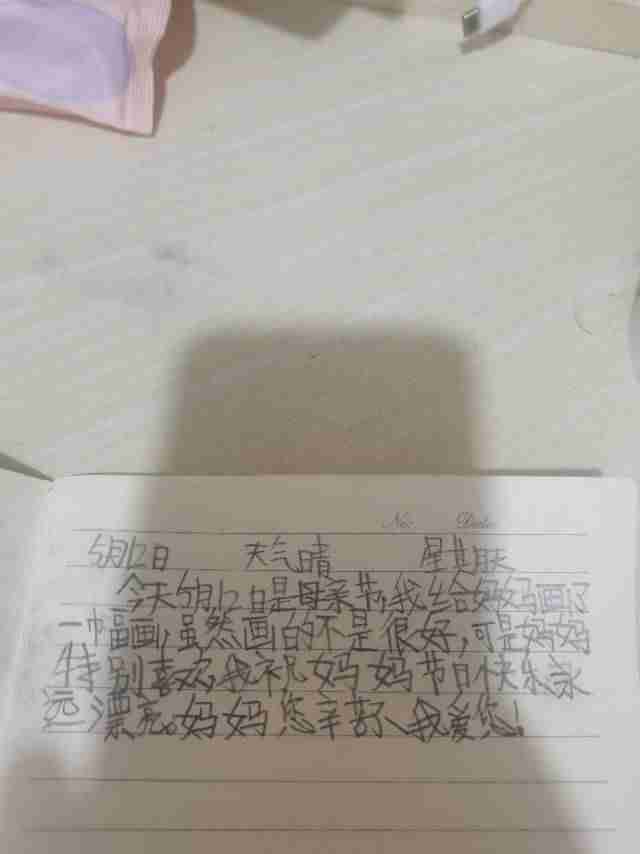 No. Date
5月12日 天气晴 星期天
今天5月12日是母亲节,我给妈妈画了
一幅画,虽然画的不是很好,可是妈妈
特别喜欢,我祝妈妈节日快乐永
远漂亮。妈妈您辛苦了、我爱您!